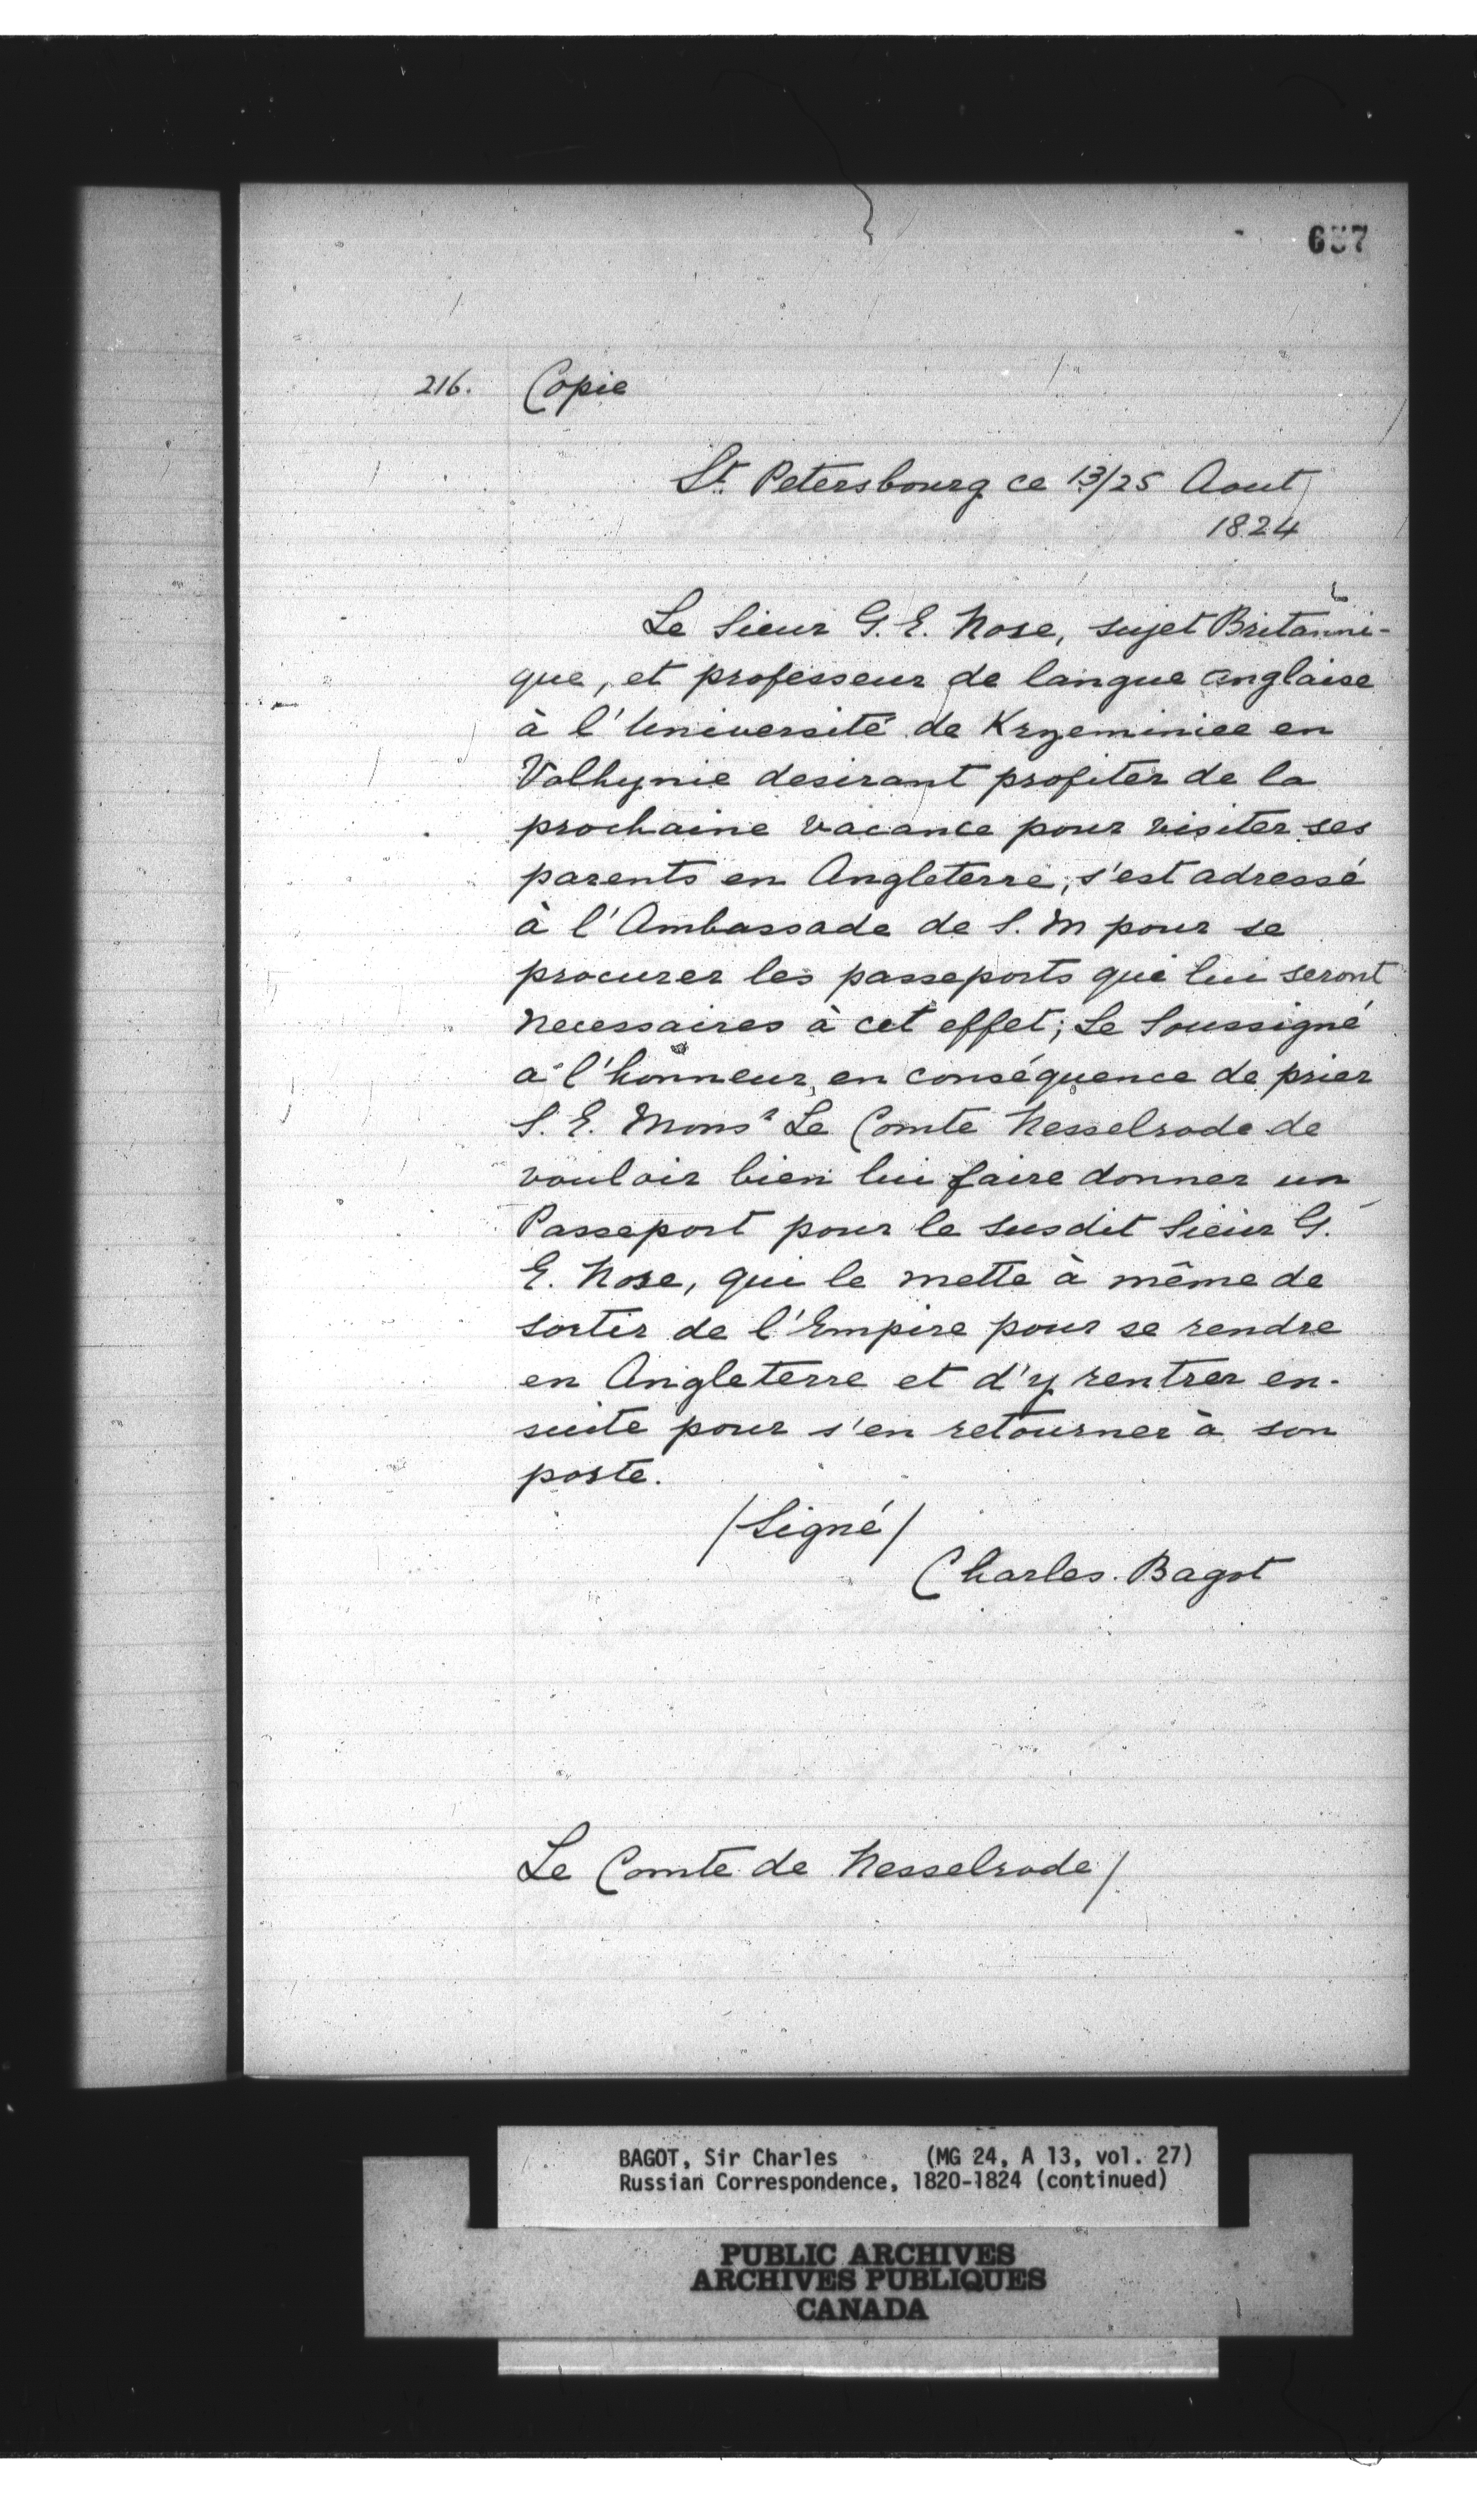 657
216. Copie
St. Petersbourg ce 13/25 Aout
1824
Le Sieur G. E. Nose, sujet Britanni-
que, et professeur de langue anglaise
à l'Université de Krzeminiee en
Volhynie desirant profiter de la
prochaine vacance pour visiter ses
parents en Angleterre, s'est adressé
à l'Ambassade de S. M pour se
procurer les passeports qui lui seront
necessaires à cet effet; Le Soussigné
a l'honneur, en conséquence de prier
S. E. Monsr Le Comte Nesselrode de
vouloir bien lui faire donner un
Passeport pour le susdit Sieur G.
E. Nose, qui le mette à même de
sortir de l'Empire pour se rendre
en Angleterre et d'y rentrer en-
suite pour s'en retourner à son
poste.
/Signé/
Charles Bagot
Le Comte de Nesselrode/
BAGOT, Sir Charles (MG 24, A 13, vol. 27)
Russian Correspondence, 1820-1824 (continued)
PUBLIC ARCHIVES
ARCHIVES PUBLIQUES
CANADA